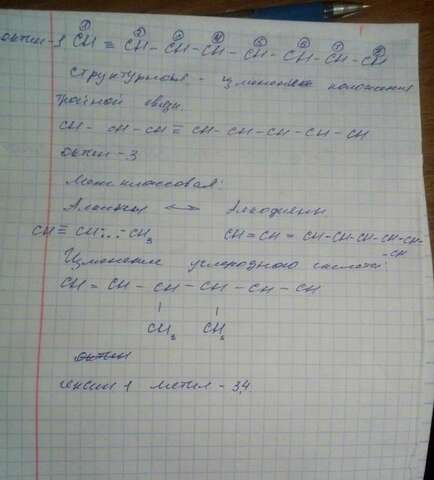 октин-1 CH ≡ CH - CH - CH - CH - CH - CH - CH
① ② ③ ④ ⑤ ⑥ ⑦ ⑧
Структурная - изменение положения
тройной связи.
CH - CH - CH ≡ CH - CH - CH - CH - CH
октин - 3
Межклассовая:
Алкины ↔ Алкодиены
CH ≡ CH... CH3 CH = CH = CH - CH - CH - CH - CH - CH
Изменение углеродного скелета:
CH ≡ CH - CH - CH - CH - CH
CH3 CH3
октин
гексин 1 метил - 3,4